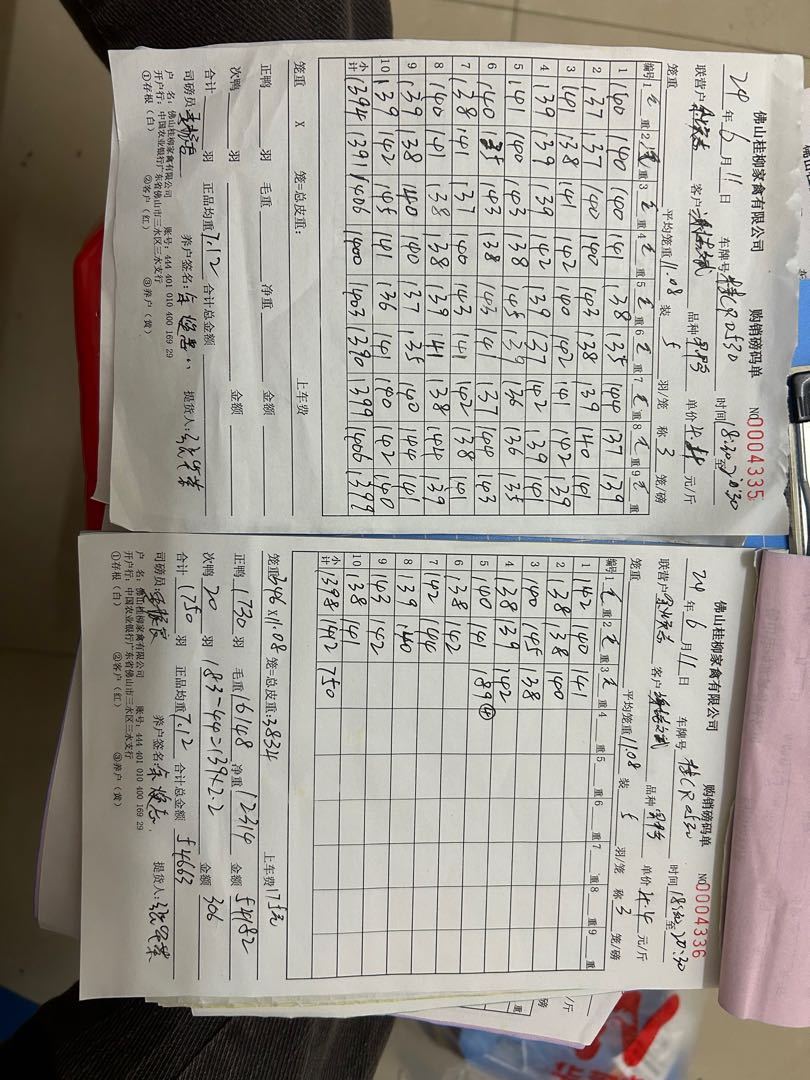 佛山桂柳家禽有限公司 购销磅码单 NO0004335
24年6月11日 车牌号桂CR0530 时间18:30至20:30
联营户 客户 品种 单价4.4元/斤
笼重 平均笼重11.08 装5羽/笼 称3笼/磅
编号 1 重 2 重 3 重 4 重 5 重 6 重 7 重 8 重 9 重
1 140 140 140 141 138 135 144 137 139
2 137 137 140 140 143 138 139 140 141
3 141 138 141 142 140 142 141 142 139
4 139 139 139 142 139 137 142 139 141
5 141 140 143 138 145 139 136 136 135
6 140 135 143 138 143 141 137 144 143
7 138 141 137 140 143 141 142 138 141
8 140 141 138 138 139 141 138 144 139
9 139 138 140 140 137 135 140 144 141
10 139 142 145 141 136 141 140 142 140
小计 1394 1391 1406 1400 1403 1390 1399 1406 1399
笼重 X 笼=总皮重: 上车费
正鸭 羽 毛重 净重 金额
次鸭 羽 金额
合计 羽 正品均重7.12 合计总金额
司磅员 养户签名: 提货人:
户 名:佛山桂柳家禽有限公司 账号:444 401 010 400 169 29
开户行:中国农业银行广东省佛山市三水区三水支行
①存根(白) ②客户(红) ③养户(黄)
佛山桂柳家禽有限公司 购销磅码单 NO0004336
24年6月11日 车牌号桂CR0530 时间18:30至20:30
联营户 客户 品种 单价4.4元/斤
笼重 平均笼重11.08 装5羽/笼 称3笼/磅
编号 1 重 2 重 3 重 4 重 5 重 6 重 7 重 8 重 9 重
1 142 140 141
2 138 138 140
3 140 145 138
4 138 139 142
5 140 141 189④
6 138 142
7 142 144
8 139 140
9 143 142
10 138 141
小计 1398 1412 750
笼重346X11.08笼=总皮重:3834 上车费175元
正鸭1730羽 毛重16148 净重12314 金额54182
次鸭20羽 183-44=139×2.2 金额306
合计1750羽 正品均重7.12 合计总金额54663
司磅员 养户签名: 提货人:
户 名:佛山桂柳家禽有限公司 账号:444 401 010 400 169 29
开户行:中国农业银行广东省佛山市三水区三水支行
①存根(白) ②客户(红) ③养户(黄)